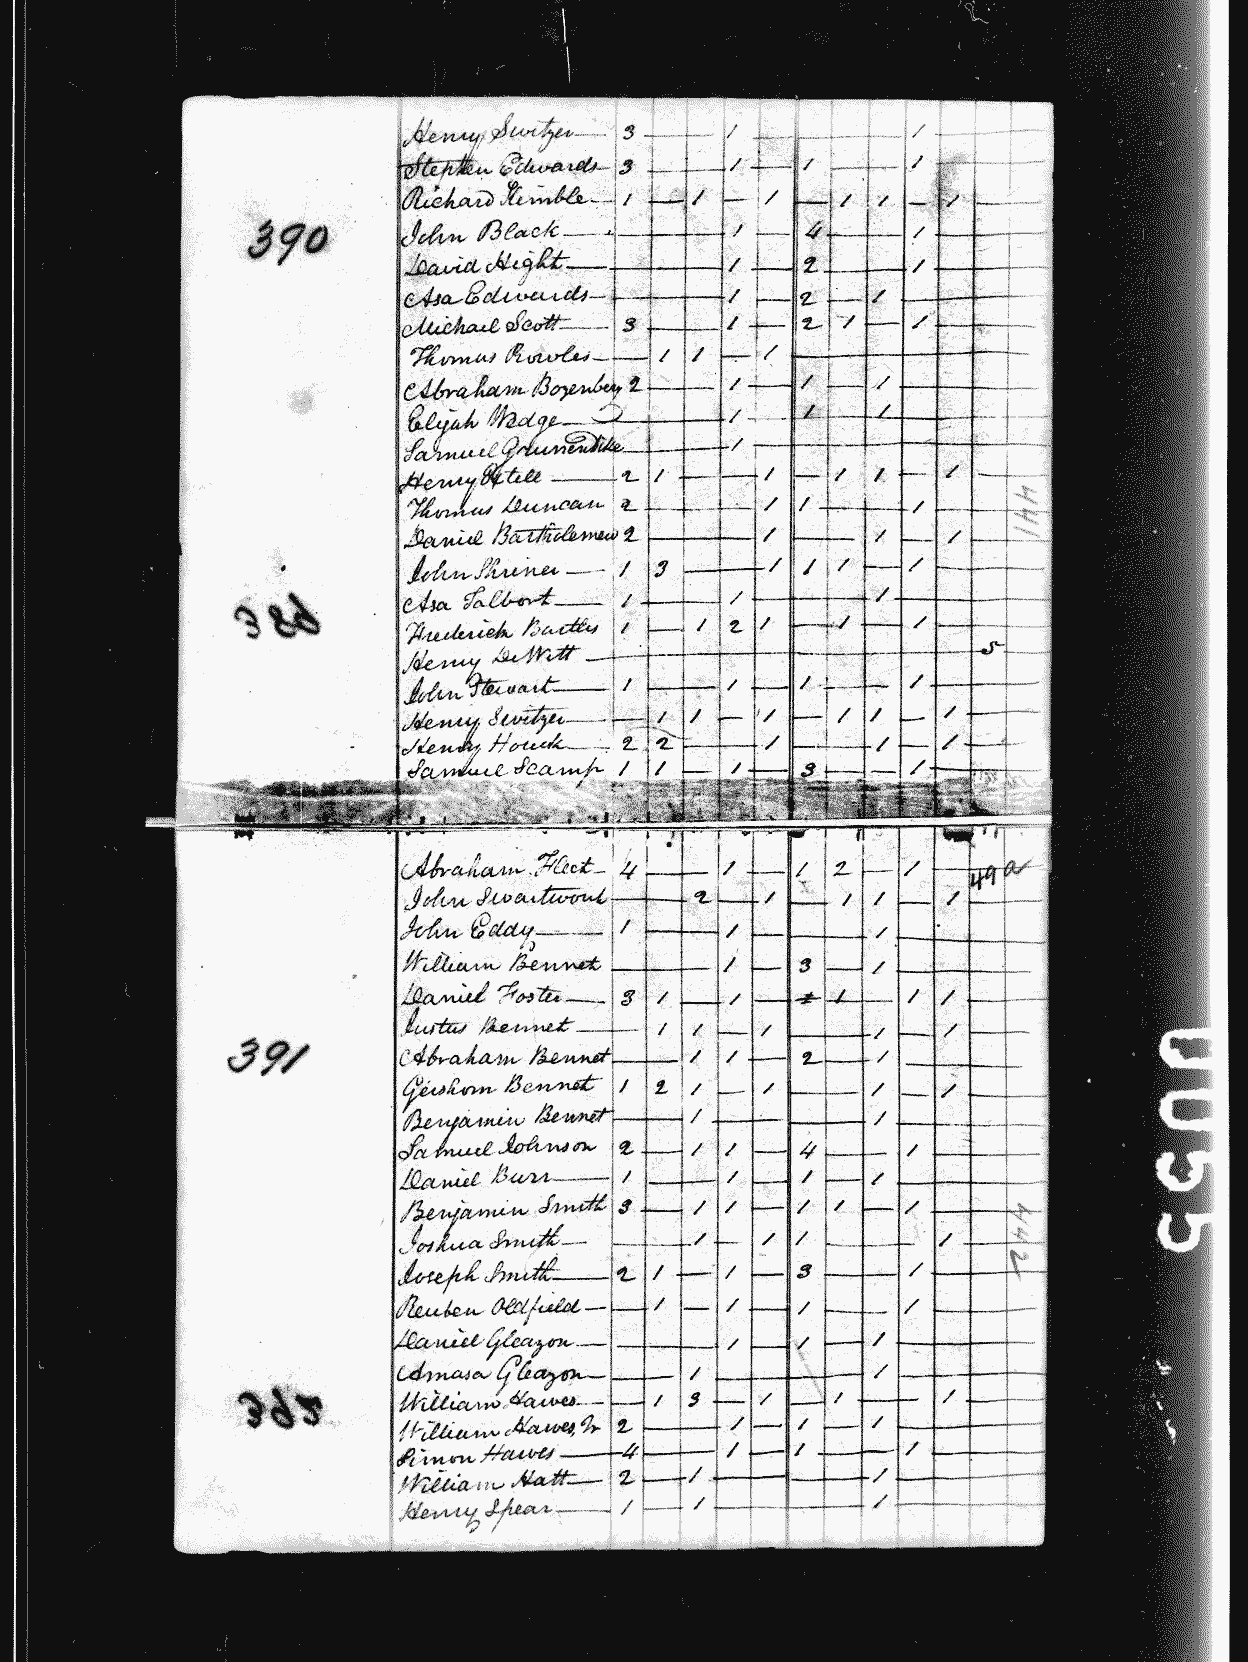 Henry Switzer 3 — — 1 — — — — 1
Stephen Edwards 3 — — 1 — 1 — — 1
Richard Kimble 1 — 1 — 1 — 1 1 — 1
390
John Black — — — 1 — 4 — — 1
David Hight — — — 1 — 2 — — 1
Asa Edwards — — — 1 — 2 — 1
Michael Scott 3 — — 1 — 2 1 — 1
Thomas Rowles — 1 1 — 1
Abraham Bozenbery 2 — — 1 — 1 — 1
Elijah Wedge — — — 1 — 1 — 1
Samuel — — — 1
Henry 2 1 — — 1 — 1 1 — 1
Thomas Duncan 2 — — — 1 1 — — 1
Daniel Bartholemew 2 — — — 1 — — 1 — 1
John Shriner 1 3 — — 1 1 1 — 1
386
Asa Talbort 1 — — 1 — — — 1
Frederick Bartles 1 — 1 2 1 — 1 — 1
Henry DeWitt — 5
John Stewart 1 — — 1 — 1 — — 1
Henry Switzer — 1 1 — 1 — 1 1 — 1
Henry Houck 2 2 — — 1 — — 1 — 1
Samuel Scamp 1 1 — 1 — 3 — — 1
441
Abraham Fleet 4 — — 1 — 1 2 — 1
49a
John Swartwout — — 2 — 1 — 1 1 — 1
John Eddy 1 — — 1 — — — 1
William Bennet — — — 1 — 3 — 1
Daniel Foster 3 1 — 1 — 1 — 1 1
Justus Bennet — 1 1 — 1 — — 1 — 1
391
Abraham Bennet — — 1 1 — 2 — 1
Gershom Bennet 1 2 1 — 1 — — 1 — 1
Benjamin Bennet — — 1 — — — — 1
Samuel Johnson 2 — 1 1 — 4 — — 1
Daniel Burr 1 — — 1 — 1 — 1
Benjamin Smith 3 — 1 1 — 1 1 — 1
Joshua Smith — — 1 — 1 1 — — — 1
Joseph Smith 2 1 — 1 — 3 — — 1
Reuben Oldfield — 1 — 1 — 1 — — 1
Daniel Gleazon — — — 1 — 1 — 1
Amasa Gleazon — — 1 — — — — 1
392
William Hawes — 1 3 — 1 — 1 — — 1
William Hawes, Jr 2 — — 1 — 1 — 1
Simon Hawes 4 — — 1 — 1 — — 1
William Hatt 2 — 1 — — — — 1
Henry Spear 1 — 1 — — — — 1
442